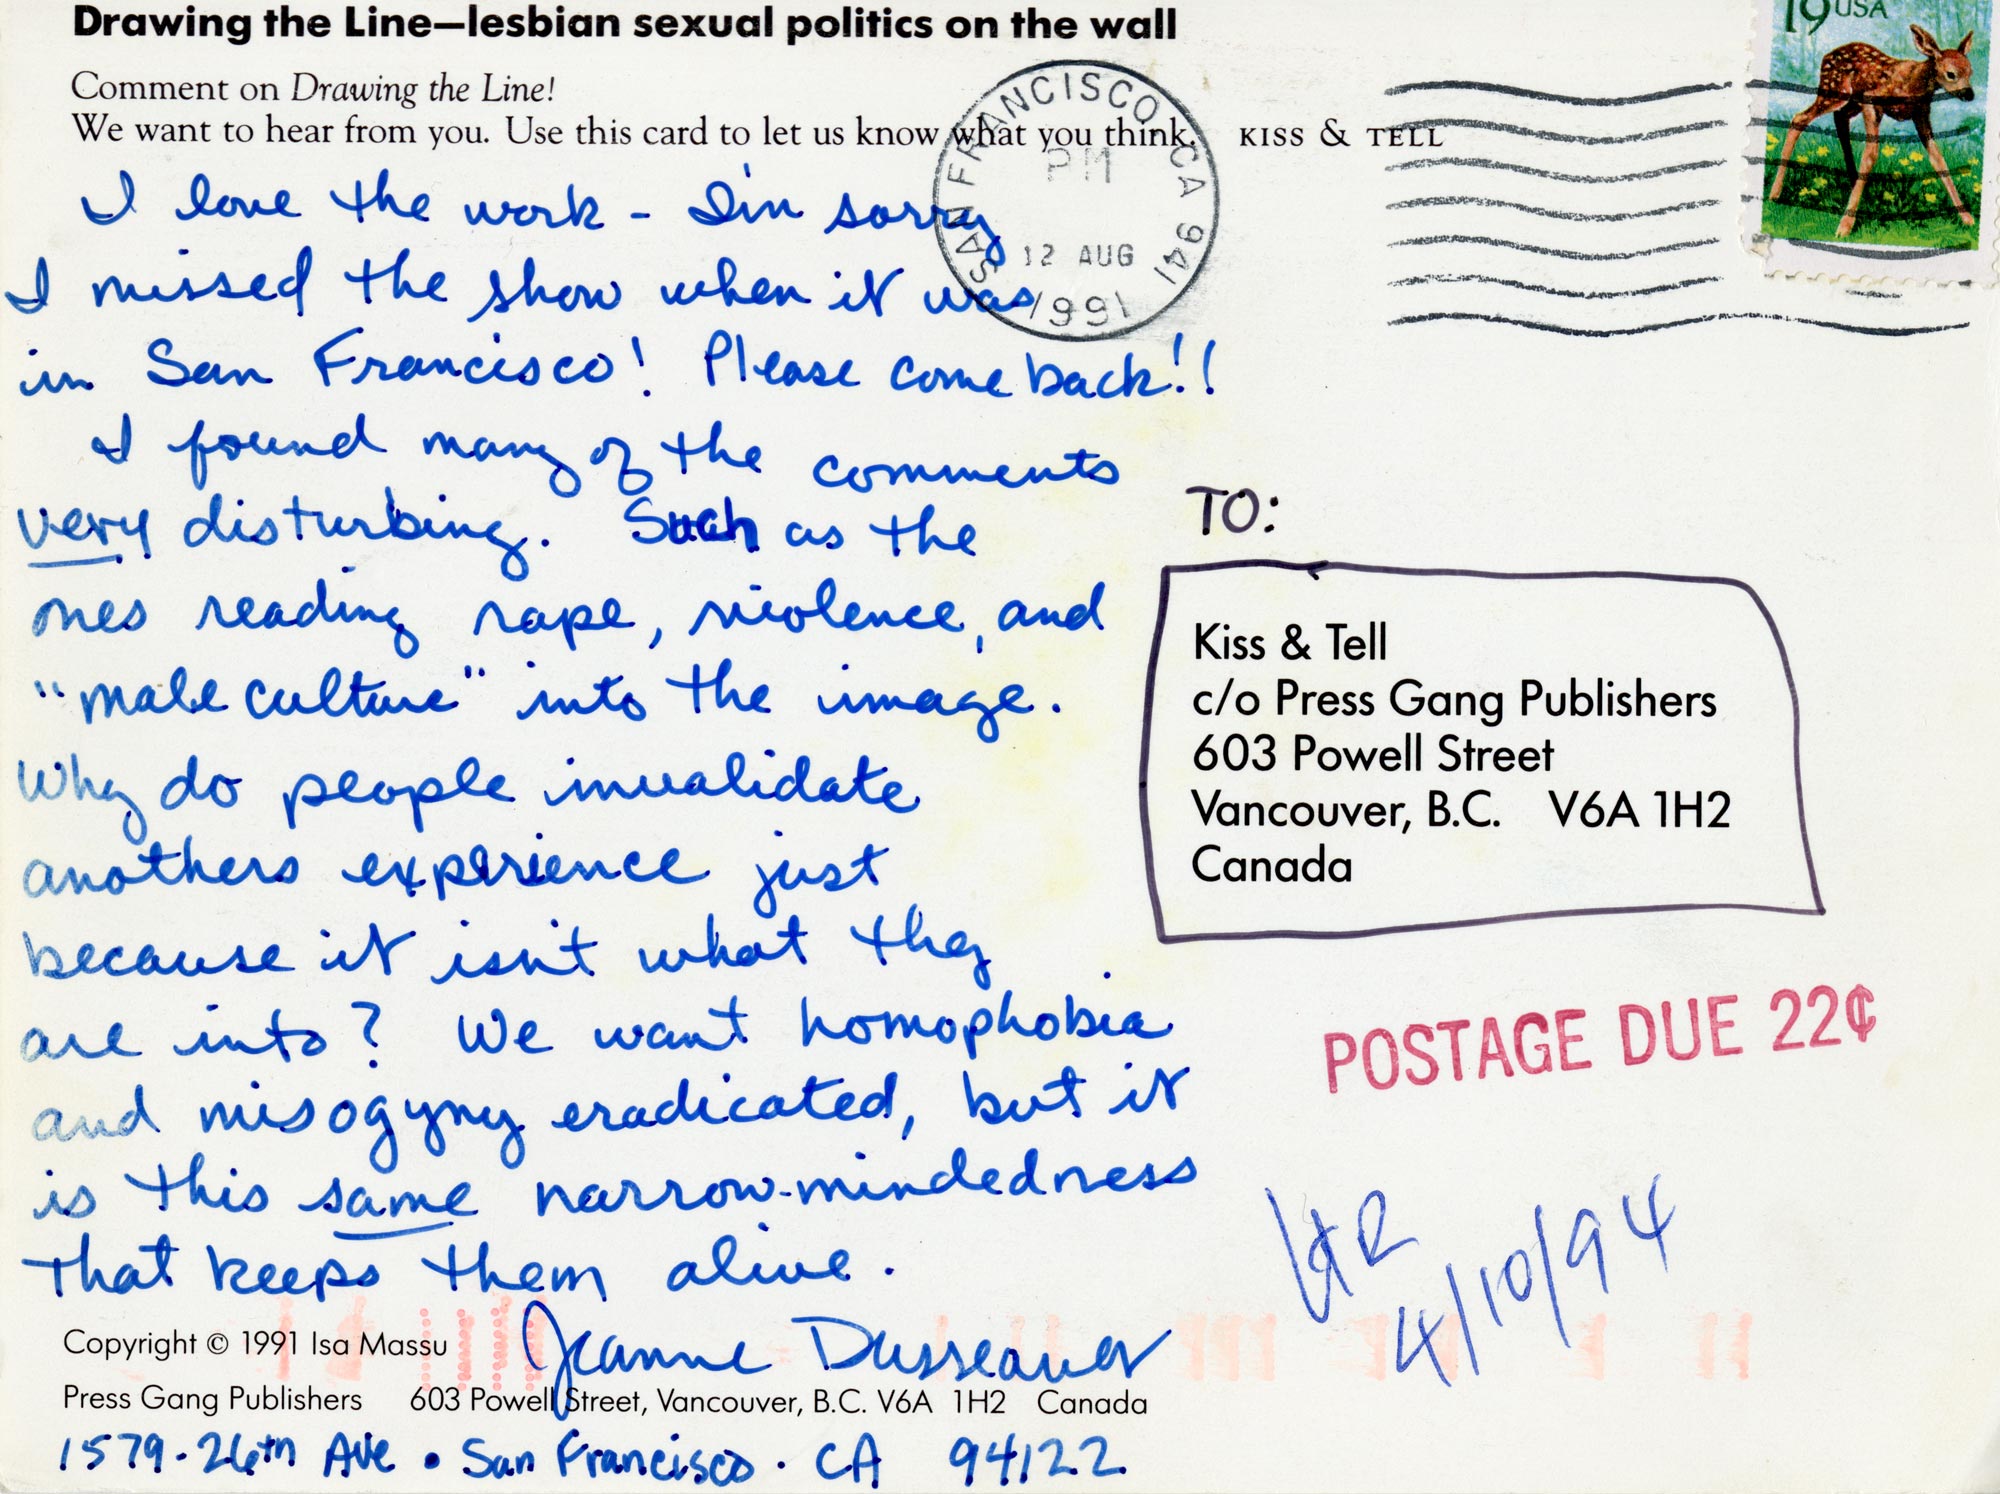 Drawing the Line—lesbian sexual politics on the wall
Comment on Drawing the Line!
We want to hear from you. Use this card to let us know what you think. KISS & TELL
19 USA
SAN FRANCISCO CA 941
PM
12 AUG
1991
I love the work - I'm sorry
I missed the show when it was
in San Francisco! Please come back!!
I found many of the comments
very disturbing. Such as the
ones reading rape, violence, and
"male culture" into the image.
Why do people invalidate
anothers experience just
because it isn't what they
are into? We want homophobia
and misogyny eradicated, but it
is this same narrow-mindedness
that keeps them alive.
Jeanne
Copyright © 1991 Isa Massu
Press Gang Publishers 603 Powell Street, Vancouver, B.C. V6A 1H2 Canada
1579 - 26th Ave • San Francisco • CA 94122
TO:
Kiss & Tell
c/o Press Gang Publishers
603 Powell Street
Vancouver, B.C. V6A 1H2
Canada
POSTAGE DUE 22¢
4/10/94